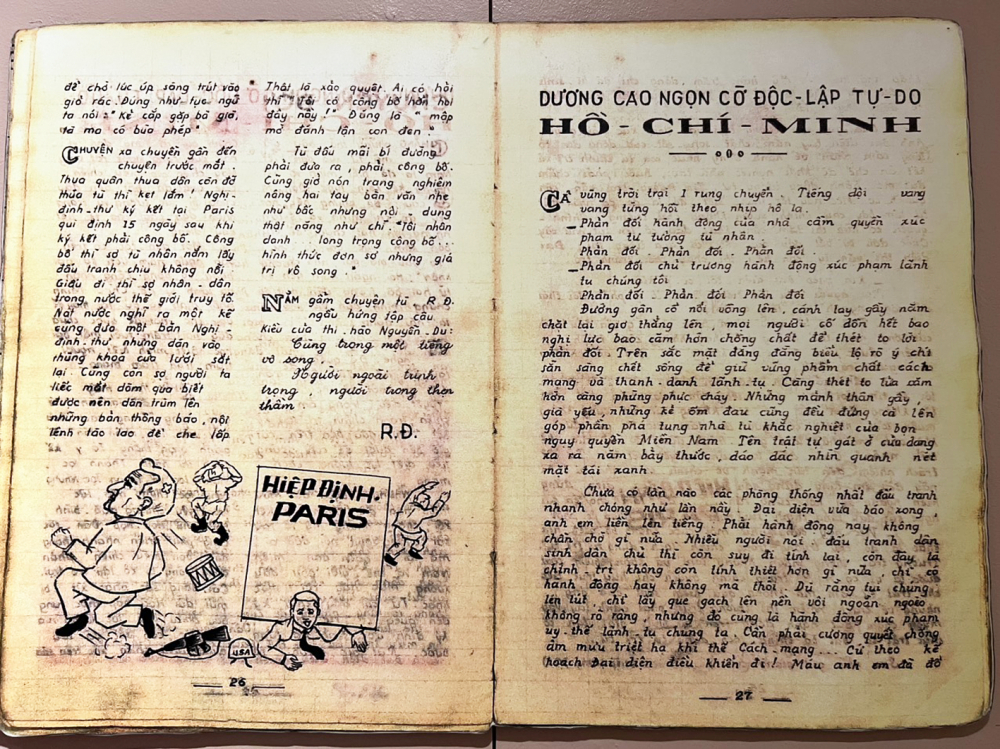 để chờ lúc úp sòng trút vào
giỏ rác. Đúng như tục ngữ
ta nói: " Kẻ cắp gặp bà già,
tà ma có bùa phép".
CHUYỆN xa chuyện gần đến
chuyện trước mắt.
Thua quân thua dân còn đỡ
thua tù thì kẹt lắm. Nghị-
định-thư ký kết tại Paris
qui định 15 ngày sau khi
ký kết phải công bố. Công
bố thì sợ tù nhân nắm lấy
đấu tranh chịu không nỗi.
Giấu đi thì sợ nhân-dân
trong nước thế giới truy tố.
Nát nước nghĩ ra một kế
cũng đưa một bản Nghị-
định-thư nhưng dán vào
thùng khóa cửa lưới sắt
lại. Cũng còn sợ người ta
liếc mắt dòm qua biết
được nên dán trùm lên
những bản thông báo, nội
lệnh tào lao để che lấp
Thật là xảo quyệt. Ai có hỏi
thì " Tôi có công bố hẳn hoi
đấy nầy". Đúng là mập
mờ đánh lận con đen.
Tù đấu mãi bí đường
phải đưa ra, phải công bố.
Cũng giở nón trang nghiêm
nâng hai tay bản văn nhẹ
như bấc nhưng nội-dung
thật nặng như chì. "Tôi nhân
danh long trọng công bố...
hình thức đơn sơ nhưng giá
trị vô song."
NẰM gẫm chuyện tù. R.Đ.
ngẫu hứng tập câu
Kiều của thi-hào Nguyễn-Du:
Cũng trong một tiếng
vô song,
Người ngoài trịnh
trọng, người trong thẹn
thầm
R.Đ.
HIỆP ĐỊNH.
PARIS
USA
26
DƯƠNG CAO NGỌN CỜ ĐỘC-LẬP TỰ-DO
HỒ-CHÍ-MINH
CẢ vùng trời trại 1 rung chuyển. Tiếng dội vang
vang từng hồi theo nhịp hô la.
_ Phản đối hành động của nhà cầm quyền xúc
phạm tư tưởng tù nhân.
Phản đối. Phản đối. Phản đối.
_ Phản đối chủ trương hành động xúc phạm lãnh
tụ chúng tôi
Phản đối. Phản đối. Phản đối
Đường gân cổ nổi vồng lên, cánh tay gầy nắm
chặt lại giơ thẳng lên, mọi người cố dồn hết bao
nghị lực bao căm hờn chồng chất để thét to lời
phản đối. Trên sắc mặt đằng đằng biểu lộ rõ ý chí
sẵn sàng chết sống để giữ vững phẩm chất cách
mạng và thanh-danh lãnh-tụ. Càng thét to lửa căm
hờn càng phừng phực cháy. Những mảnh thân gầy,
già yếu, những kẻ ốm đau cũng đều đứng cả lên
góp phần phá tung nhà tù khắc nghiệt của bọn
ngụy quyền Miền Nam. Tên trật tự gát ở cửa dang
xa ra năm bảy thước, dáo dác nhìn quanh nét
mặt tái xanh.
Chưa có lần nào các phòng thống nhất đấu tranh
nhanh chóng như lần nầy. Đại diện vừa báo xong,
anh em liền lên tiếng. Phải hành động ngay không
chần chờ gì nữa. Nhiều người nói: đấu tranh dân
sinh dân chủ thì còn suy đi tính lại, còn đây là
chính-trị không còn tính thiệt hơn gì nữa, chỉ có
hành động hay không mà thôi. Dù rằng tụi chúng
lén lút chỉ lấy que gạch lên nền vôi ngoằn ngoèo
không rõ ràng, nhưng đó cũng là hành động xúc phạm
uy-thế lãnh-tụ chúng ta. Cần phải cương quyết chống
âm mưu triệt hạ khí thế Cách-mạng... Cứ theo kế
hoạch Đại diện điều khiển đi! Máu anh em đã đổ
27